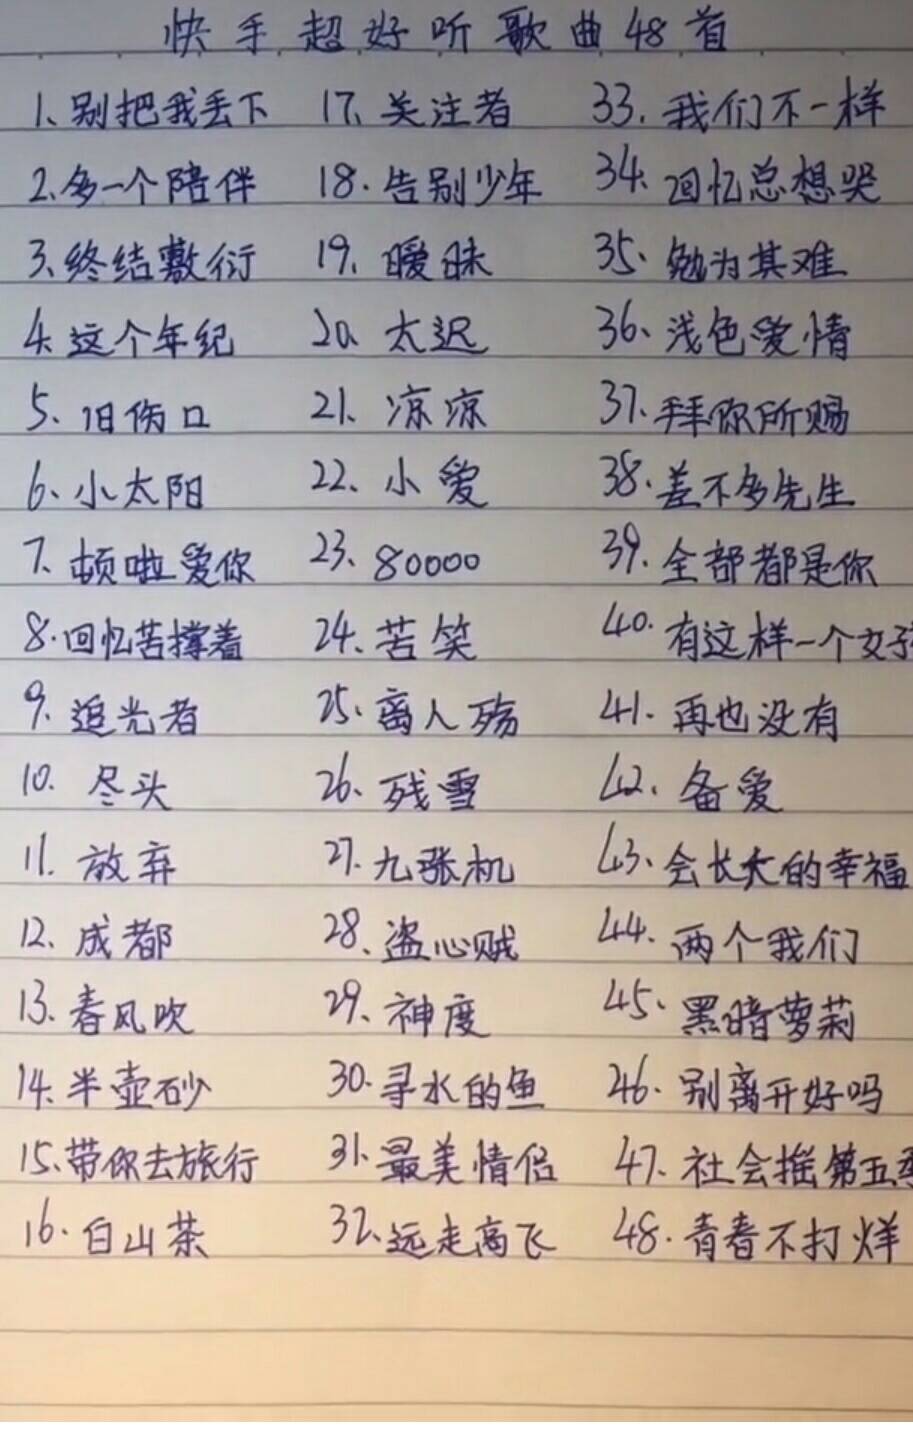 快手超好听歌曲48首
1、别把我丢下
2、多一个陪伴
3、终结敷衍
4、这个年纪
5、旧伤口
6、小太阳
7、顿啦爱你
8.回忆苦撑着
9、追光者
10、尽头
11.放弃
12、成都
13、春风吹
14.半壶砂
15、带你去旅行
16.白山茶
17、关注者
18.告别少年
19、暧昧
20、太迟
21、凉凉
22、小爱
23、80000
24、苦笑
25、离人殇
26、残雪
27、九张机
28、盗心贼
29、神度
30.寻水的鱼
31、最美情侣
32、远走高飞
33、我们不一样
34、回忆总想哭
35、勉为其难
36、浅色爱情
37.拜你所赐
38.差不多先生
39、全部都是你
40.有这样一个女孩
41.再也没有
42、备爱
43、会长大的幸福
44.两个我们
45、黑暗萝莉
46.别离开好吗
47、社会摇第五季
48.青春不打烊